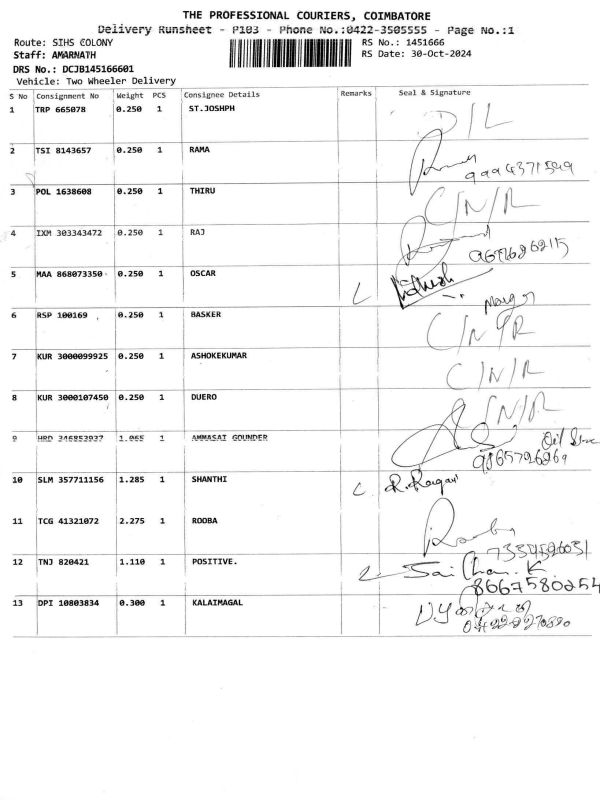 THE PROFESSIONAL COURIERS, COIMBATORE
Delivery Runsheet - P103 - Phone No.:0422-3505555 - Page No.:1
Route: SIHS COLONY
RS No.: 1451666
Staff: AMARNATH
RS Date: 30-Oct-2024
DRS No.: DCJB145166601
Vehicle: Two Wheeler Delivery
S No Consignment No Weight PCS Consignee Details Remarks Seal & Signature
1 TRP 665078 0.250 1 ST.JOSHPH D/L
2 TSI 8143657 0.250 1 RAMA
3 POL 1638608 0.250 1 THIRU C/N/R
4 IXM 303343472 0.250 1 RAJ
5 MAA 868073350 0.250 1 OSCAR
6 RSP 100169 0.250 1 BASKER C/N/R
7 KUR 3000099925 0.250 1 ASHOKEKUMAR C/N/R
8 KUR 3000107450 0.250 1 DUERO C/N/R
9 HRD 346853937 1.065 1 AMMASAI GOUNDER
10 SLM 357711156 1.285 1 SHANTHI
11 TCG 41321072 2.275 1 ROOBA
12 TNJ 820421 1.110 1 POSITIVE. Sai Chan.K
8667580254
13 DPI 10803834 0.300 1 KALAIMAGAL